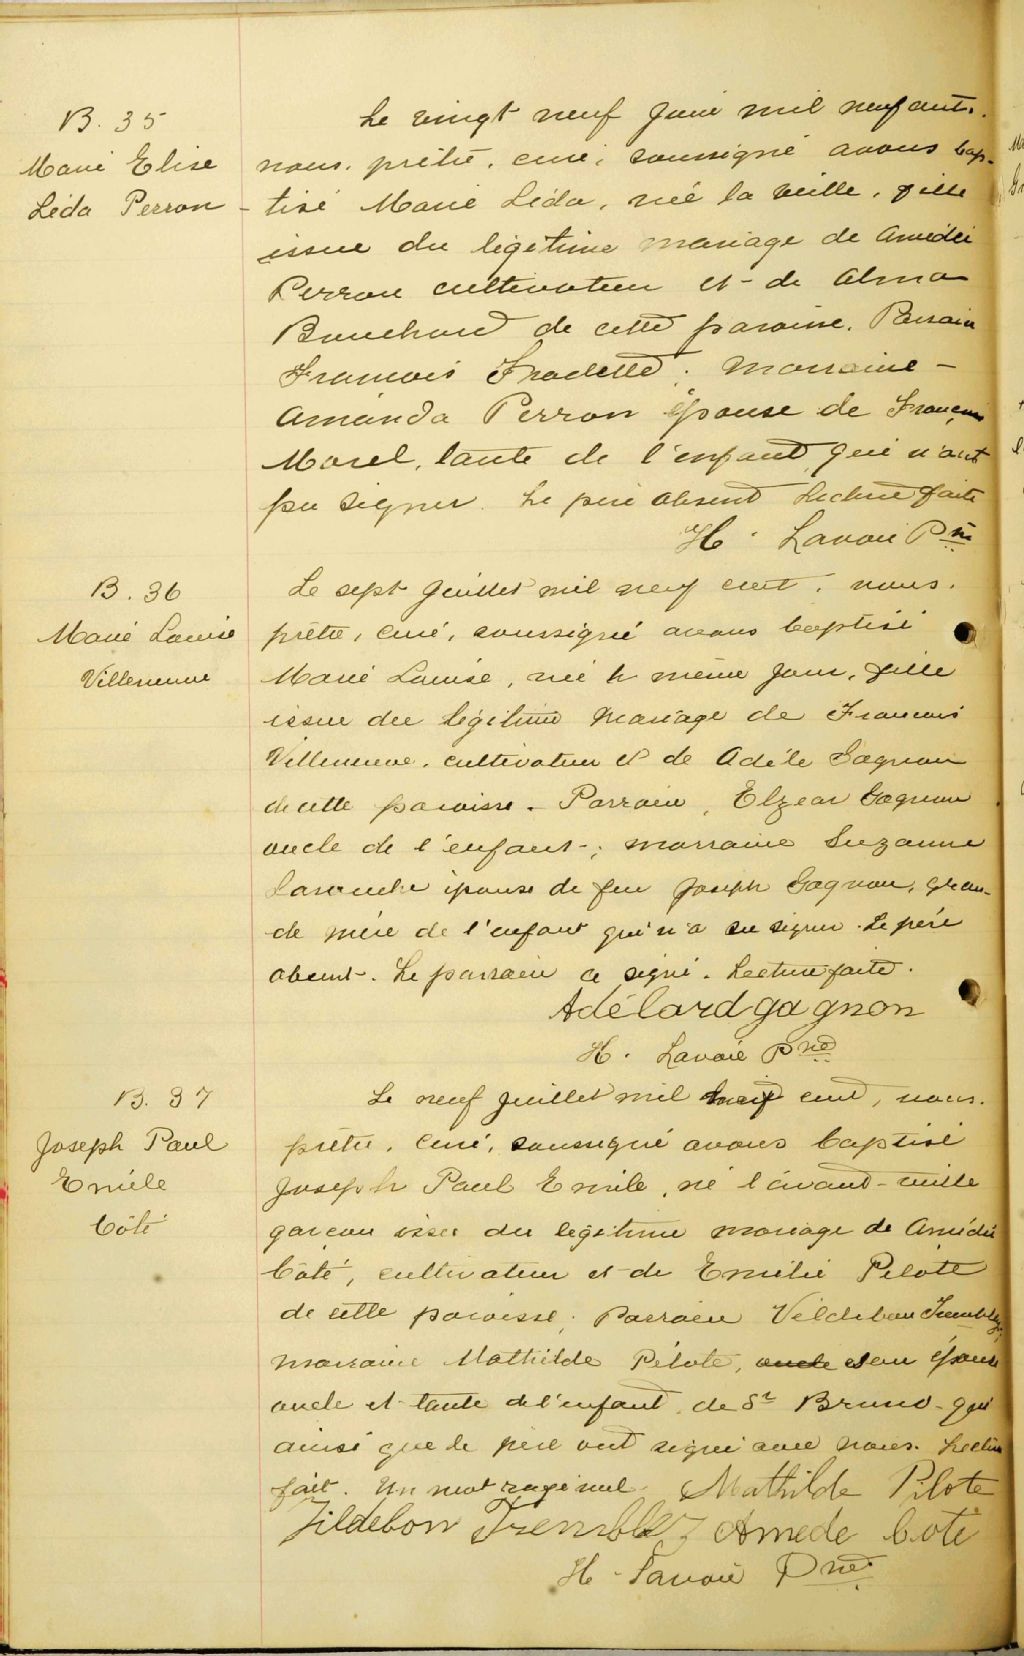 B. 35
Marie Elise
Léda Perron -
Le vingt neuf Juin mil neuf cent.
nous, prêtre, curé, soussigné avons bap-
tisé Marie Léda, née la veille, fille
issue du légitime mariage de Amédée
Perron cultivateur et de Alma
Bouchard de cette paroisse. Parrain
François Fradette; marraine -
Amanda Perron épouse de François
Morel, tante de l'enfant qui n'ont
pu signer. Le père absent Lecture faite
H. Lavoie Ptre
B. 36
Marie Louise
Villeneuve
Le sept Juillet mil neuf cent, nous,
prêtre, curé, soussigné avons baptisé
Marie Louise, née le même jour, fille
issue du légitime mariage de François
Villeneuve, cultivateur et de Adèle Gagnon
de cette paroisse - Parrain, Elzear Gagnon
oncle de l'enfant -; marraine Suzanne
Larouche épouse de feu Joseph Gagnon, gran-
de mère de l'enfant qui n'a su signer. Le père
absent. Le parrain a signé. Lecture faite.
Adélard gagnon
H. Lavoie Ptre
B. 37
Joseph Paul
Emile
Côté
Le neuf Juillet mil neuf cent, nous,
prêtre, curé, soussigné avons baptisé
Joseph Paul Emile, né l'avant-veille
garçon issu du légitime mariage de Amédée
Côté, cultivateur et de Emilie Pilote
de cette paroisse; Parrain Vildebon Tremblay;
marraine Mathilde Pilote, oncle son épouse
oncle et tante de l'enfant, de St Bruno - qui
ainsi que le père ont signé avec nous. Lecture
fait. Un mot rayé nul. Mathilde Pilote
Jildebon Tremblay Amede Coté
H. Lavoie Ptre